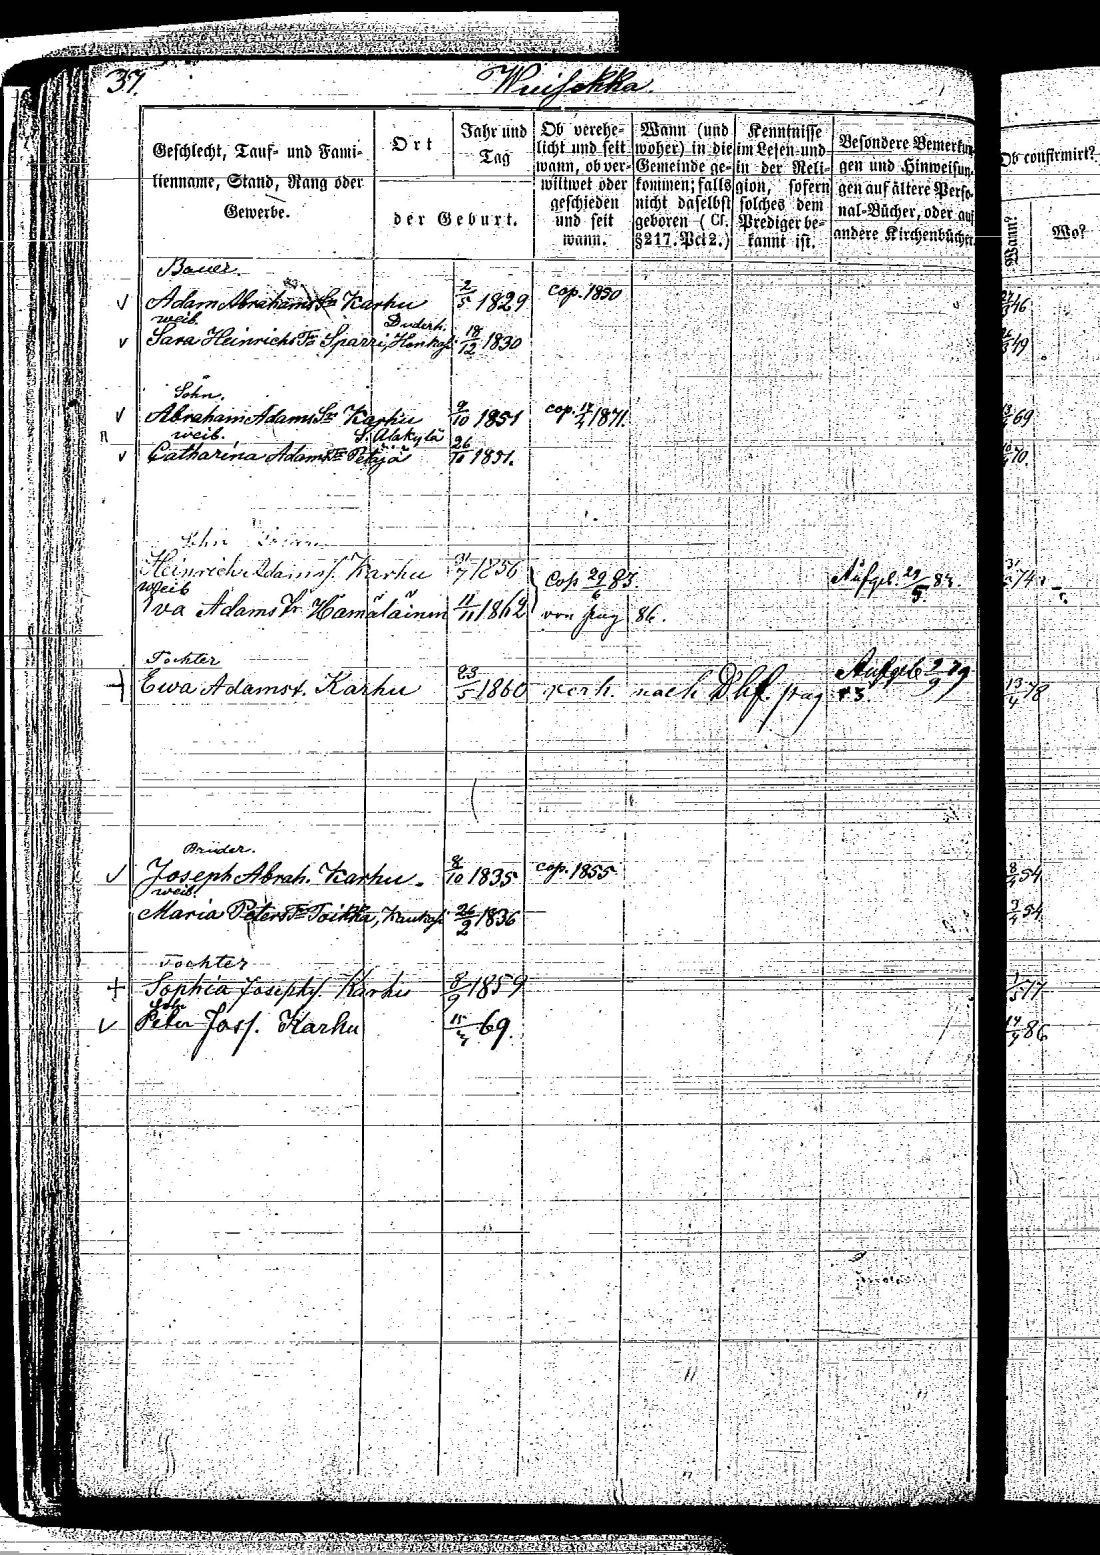 37.
Wuisokka.
Geschlecht, Tauf- und Fami-
lienname, Stand, Rang oder
Gewerbe.
Ort
Jahr und
Tag
der Geburt.
Ob verehe-
licht und seit
wann, ob ver-
wittwet oder
geschieden
und seit
wann.
Wann (und
woher) in die
Gemeinde ge-
kommen; falls
nicht daselbst
geboren (Cf.
§217. Pct 2.)
Kenntnisse
im Lesen und
in der Reli-
gion, sofern
solches dem
Prediger be-
kannt ist.
Besondere Bemerkun-
gen und Hinweisun-
gen auf ältere Perso-
nal-Bücher, oder auf
andere Kirchenbücher
Ob confirmirt?
Wann?
Wo?
Bauer.
√ Adam Abrahams Sn Karhu 2/5 1829 cop. 1850 46
weib. Duderh.
√ Sara Heinrichs Tr Sparri, 18/12 1830 49
Sohn.
√ Abraham Adams Sn Karhu 9/10 1851 cop. 1871. 69
weib. S. Alakylä
√ Catharina Adams Tr Petäjä 26/10 1851. 70.
Sohn
Heinrich Adams S. Karhu 31/7 1856 Cop 29/6 83. Aufgeb. 29/5 83. 74
weib
Eva Adams Tr. Hämäläinen 11/11 1862 von pag 86.
Tochter
+ Ewa Adams t. Karhu 23/5 1860 verh. nach Dhf. pag 43. Aufgeb 2/9 79 13/4 78
Bruder.
√ Joseph Abrah. Karhu. 8/10 1835 cop. 1855 54
weib.
Maria Peters Tr Toikka, 26/2 1836 54
Tochter
+ Sophia Josephs. Karhu 8/9 1859 1/5 77
Sohn
√ Peter Jos S. Karhu 69. 86